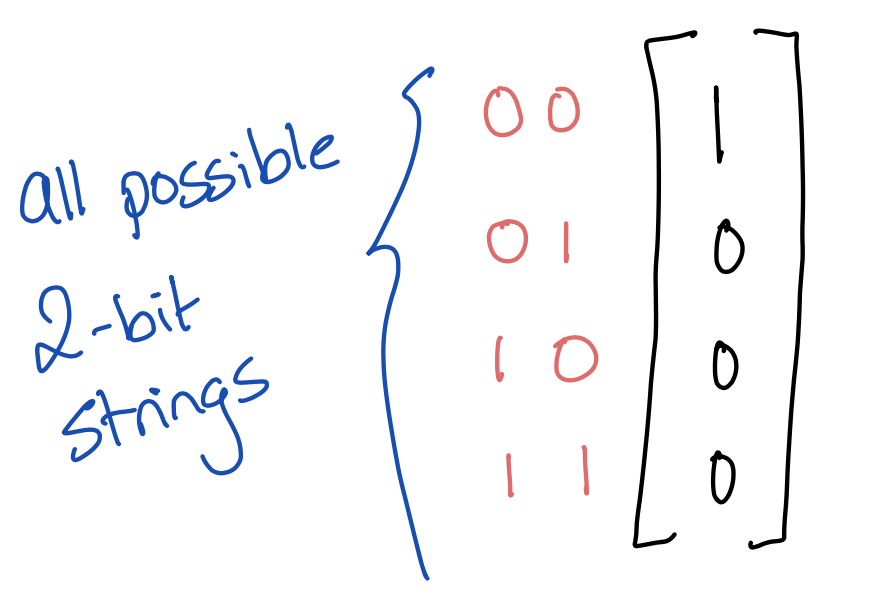 all possible
2-bit
strings
0 0 1
0 1 0
1 0 0
1 1 0